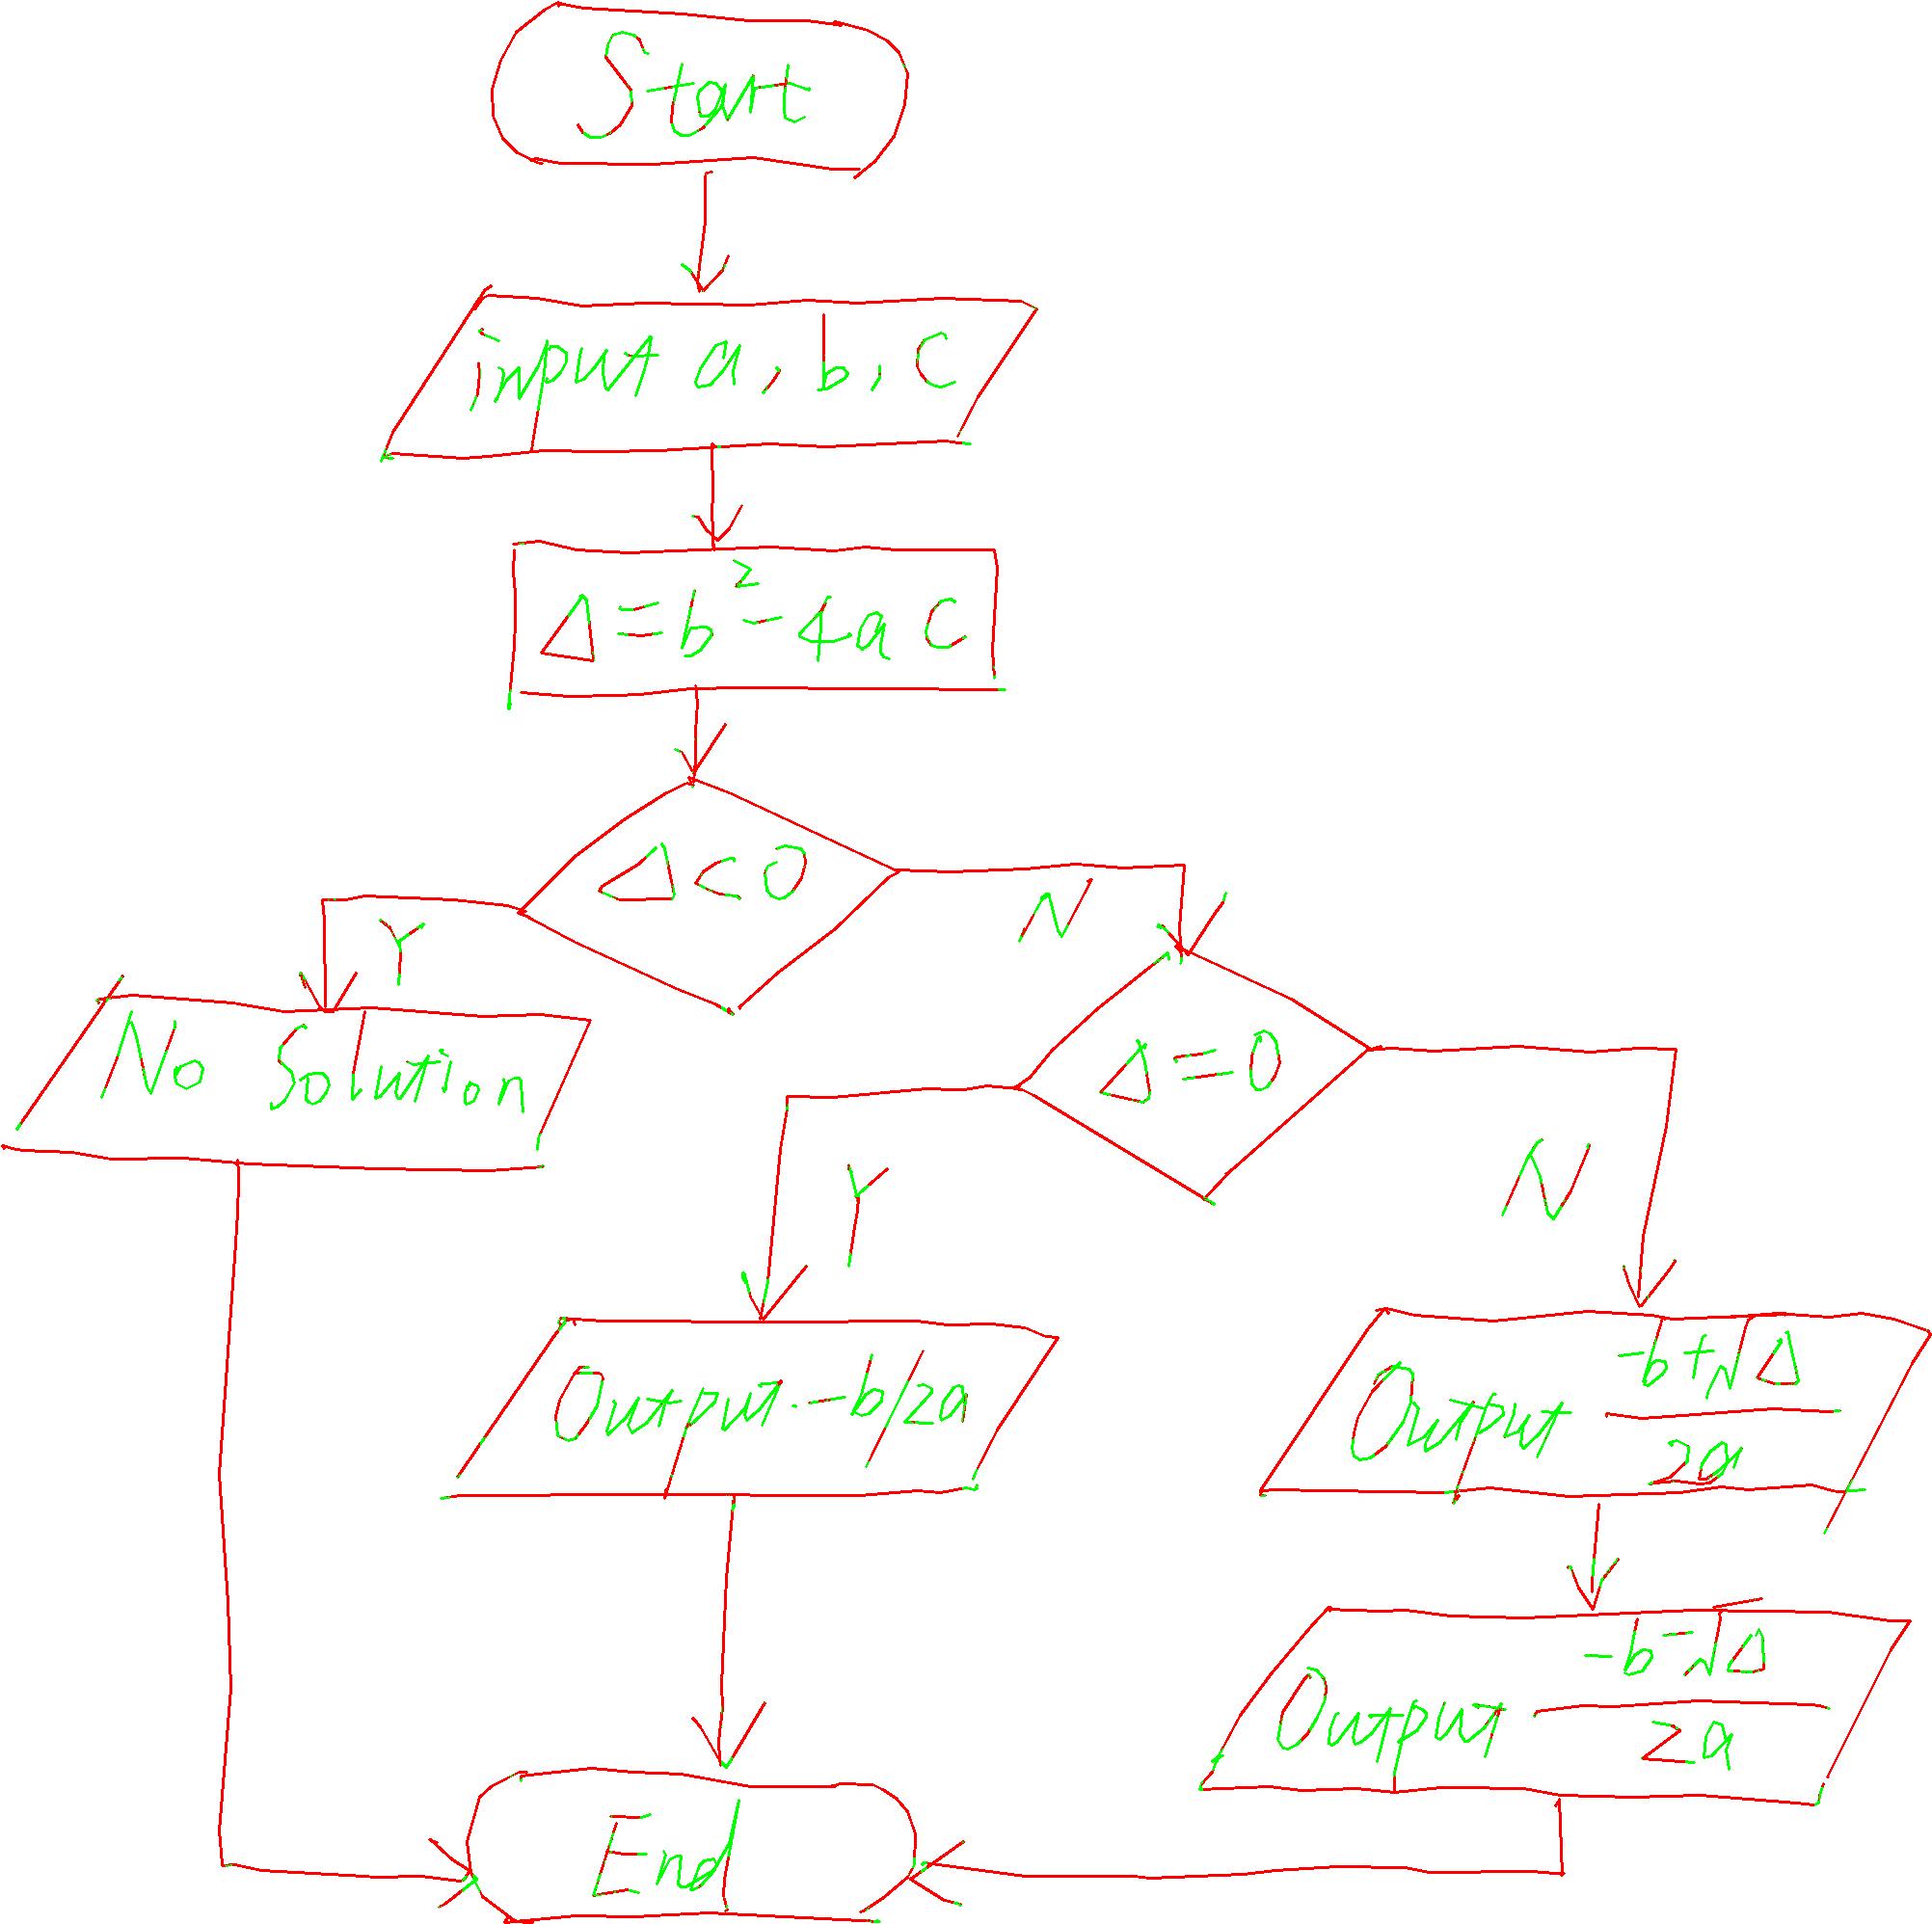 Start
input a, b, c
Δ = b² - 4ac
Δ < 0
Y
N
No Solution
Δ = 0
Y
N
Output -b/2a
Output (-b+√Δ)/2a
Output (-b-√Δ)/2a
End